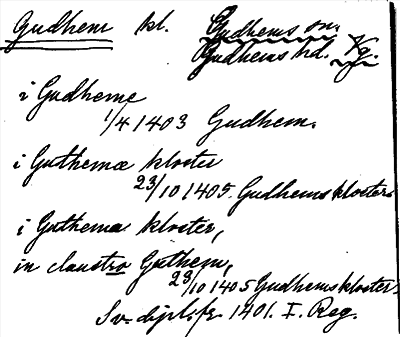 Gudhem kl. Gudhems sn.
Gudhems hd. Vg.
i Gudheme
1/4 1403 Gudhem.
i Guthemæ kloster
23/10 1405. Gudhems kloster
i Guthema kloster,
in claustro Guthem,
23/10 1405 Gudhems kloster.
Sv. dipl. fr. 1401. I. Reg.